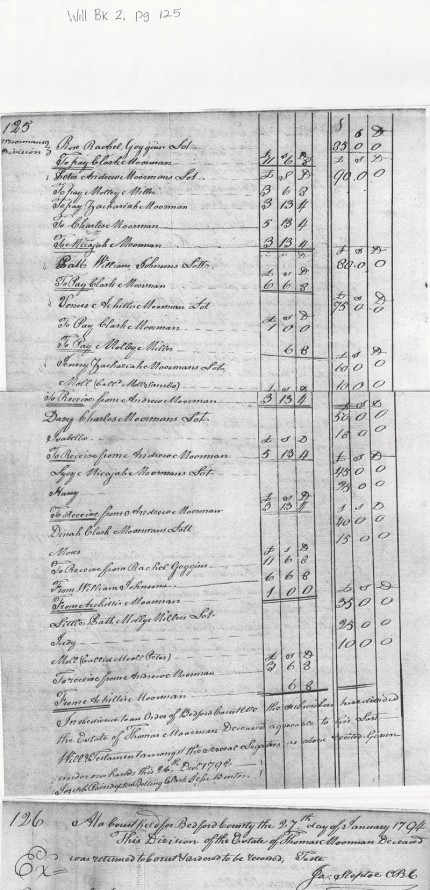 Will BK 2, pg 125
125
Moorman's Division
£ s D
Rose Rachel Goggins Lot 85 0 0
To pay Clark Moorman 11 6 8
£ s D
Peter Andrew Moormans Lot 90 0 0
To pay Molley Miller 3 6 8
To pay Zachariah Moorman 3 13 4
To Charles Moorman 5 13 4
To Micajah Moorman 3 13 4
£ s D
Patt William Johnsons Lott 80 0 0
To Pay Clark Moorman 6 6 8
£ s D
Venus Achillis Moorman Lot 75 0 0
£ s D
To Pay Clark Moorman 1 0 0
To Pay Molley Miller 6 8
£ s D
Jenny Zachariah Moormans Lot 60 0 0
Moll (Calld Moll Sambo) 10 0 0
£ s D
To Receive from Andrew Moorman 3 13 4
£ s D
Davy Charles Moormans Lot 50 0 0
Isabella 18 0 0
£ s D
To Receive from Andrew Moorman 5 13 4
£ s D
Lyey Micajah Moormans Lot 45 0 0
Harry 25 0 0
£ s D
To Receive from Andrew Moorman 3 13 4
£ s D
Dinah Clark Moormans Lott 40 0 0
Moses 15 0 0
£ s D
To Receive from Rachel Goggins 11 6 8
From William Johnsons 6 6 8
From Achillis Moorman 1 0 0
£ s D
Little Patt Mollys Millers Lot 35 0 0
Judy 25 0 0
Moll (Called Moll Peter) 10 0 0
£ s D
To receive from Andrew Moorman 3 6 8
From Achillis Moorman 6 8
In obedience to an Order of Bedford Court We the subscribers have divided
the Estate of Thomas Moorman Deceased agreeable to his Last
Will & Testament amongst the several Legatees as above stated Given
under our hands this 26th Decr. 1793
Joseph Bolling Clark
126
At a Court held for Bedford County the 27th day of January 1794
This Division of the Estate of Thomas Moorman Deceased
was returned to Court & ordered to be recorded, Teste
Ex=
Ja: Steptoe CBC